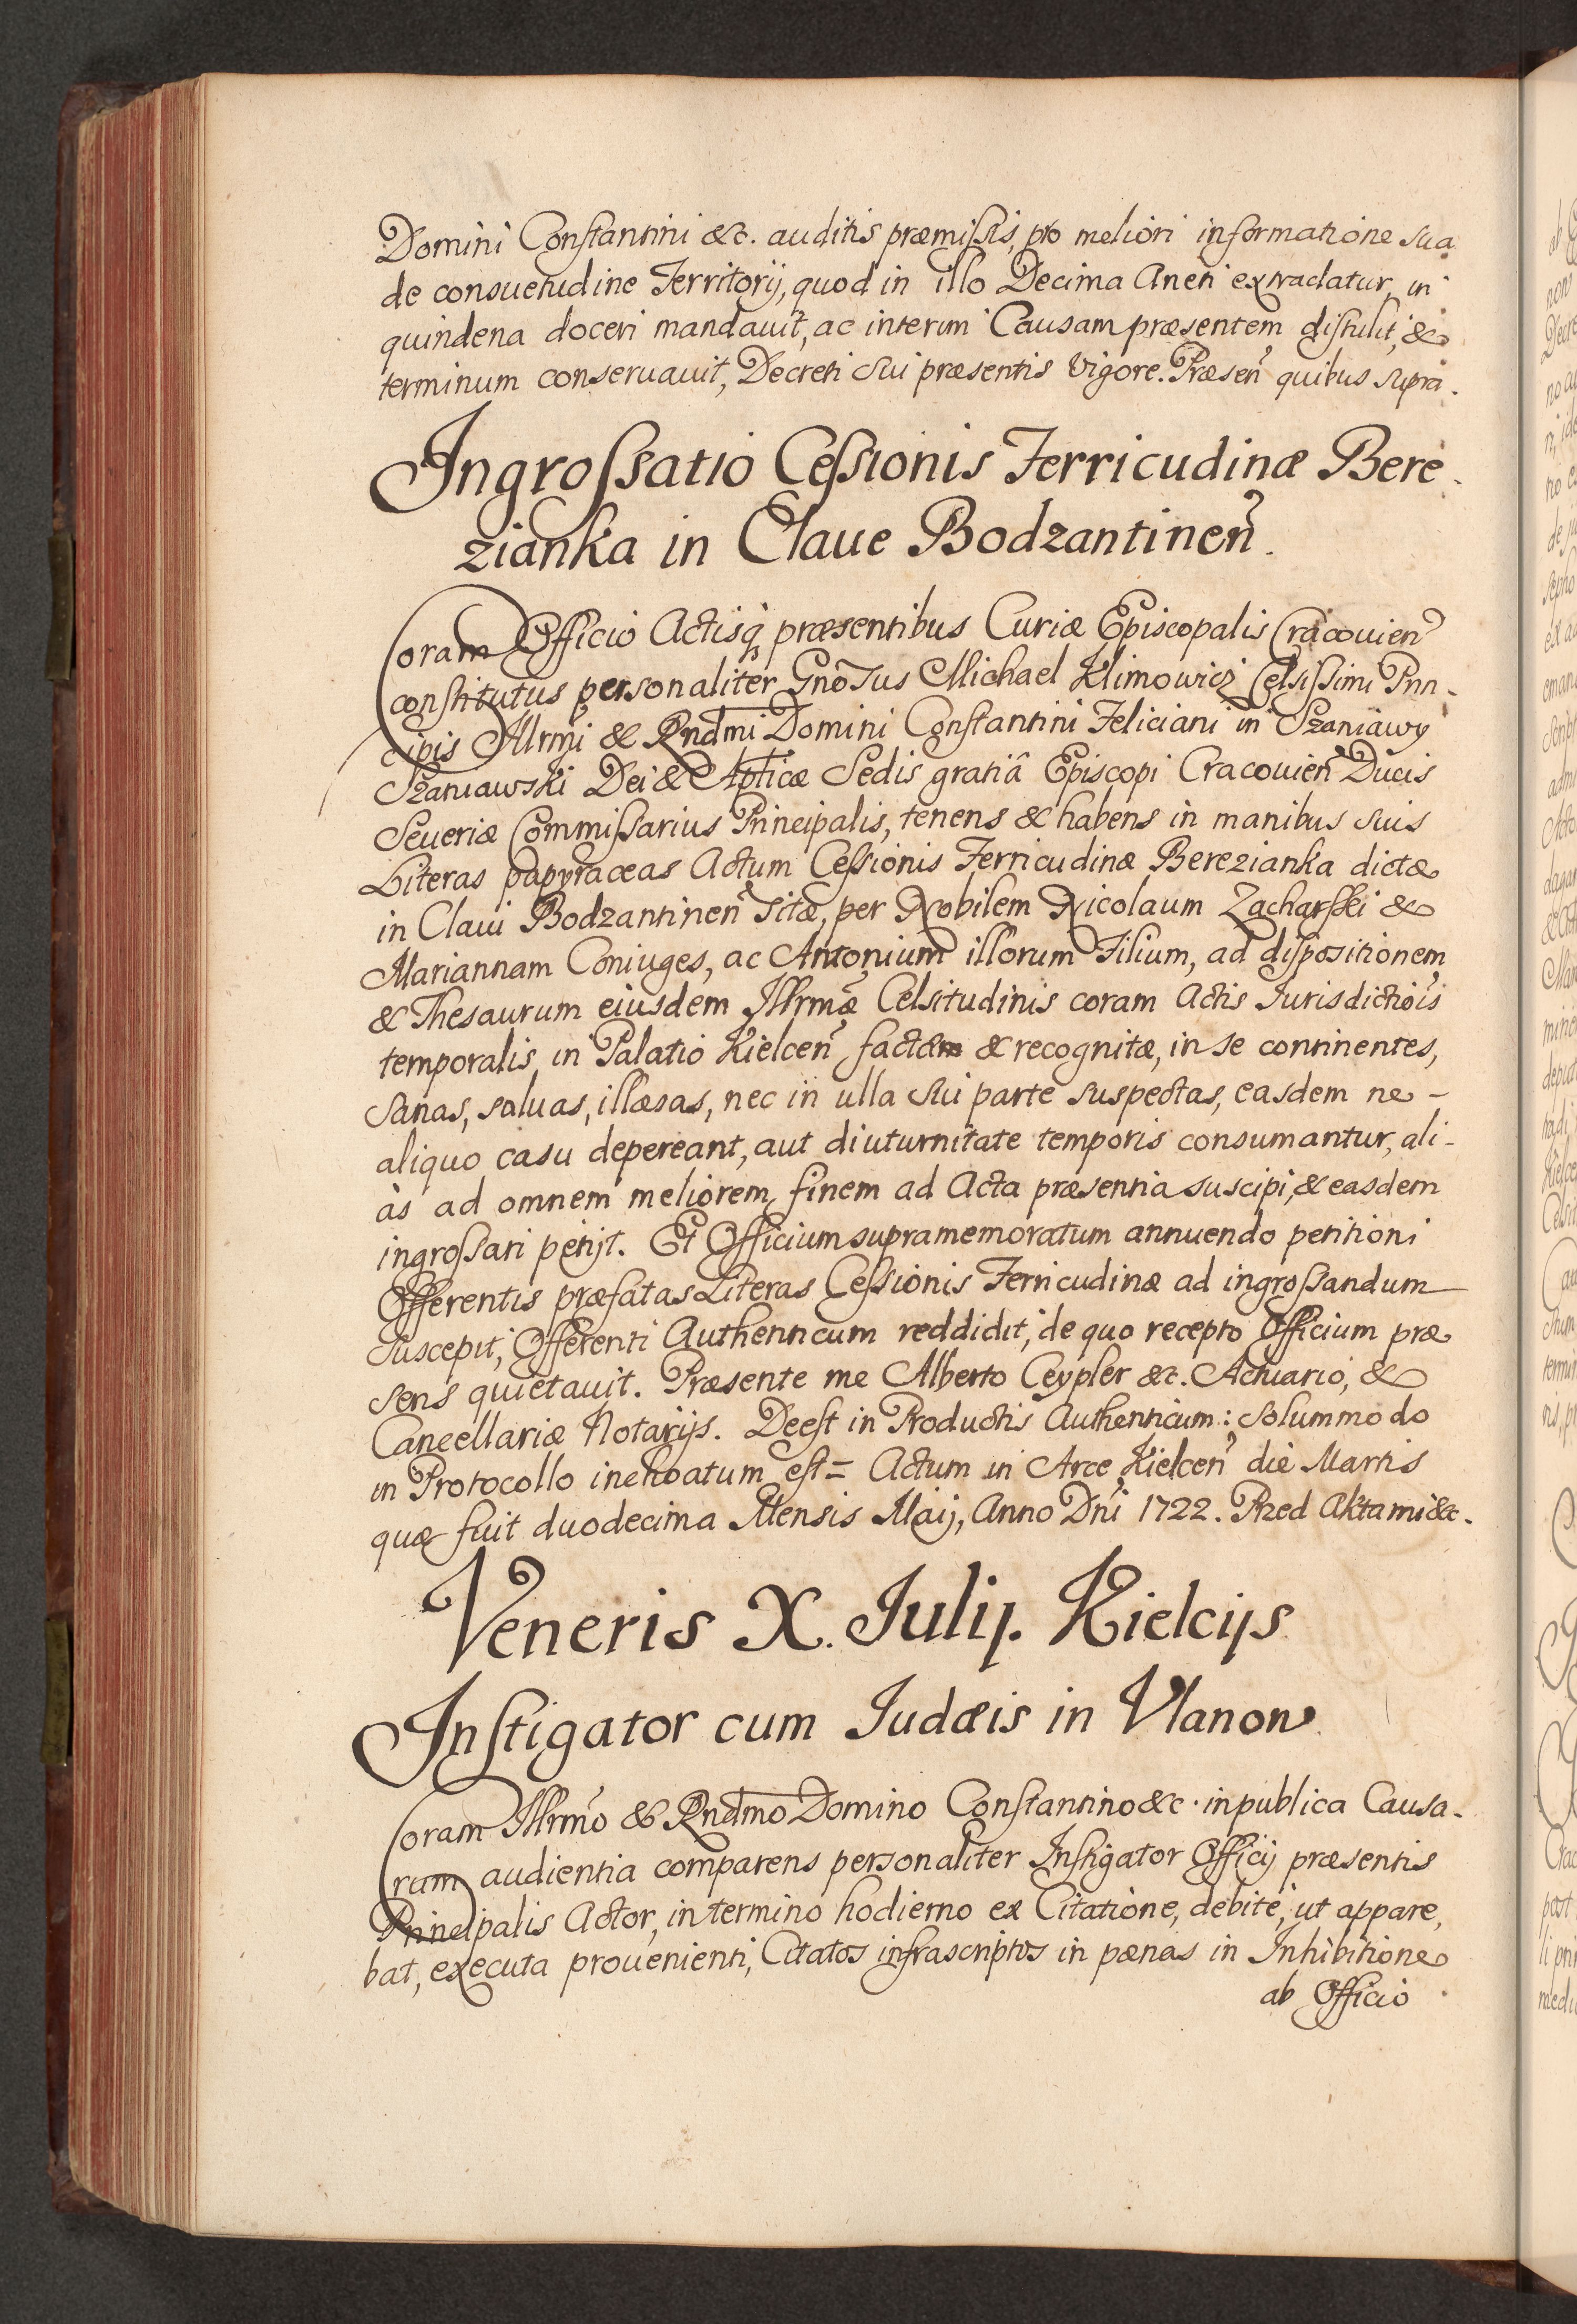 Domini Constantini &c. auditis præmissis, pro meliori informatione sua
de consuetudine Territorij, quod in illo Decima Aneti extradatur, in
quindena doceri mandauit, ac interim Causam præsentem distulit, &
terminum conseruauit, Decreti sui præsentis vigore. Præseñ quibus supra.
Ingrossatio Cessionis Ferricudinæ Bere-
zianka in Claue Bodzantineñ.
Coram Officio Actisq præsentibus Curiæ Episcopalis Cracouieñ
constitutus personaliter Gnosus Michael Klimowicz Celsissimi Prin-
cipis Illrmi & Rndmi Domini Constantini Feliciani in Szaniawy
Szaniawski Dei & Aplicæ Sedis gratiâ Episcopi Cracouieñ Ducis
Seueriæ Commissarius Principalis, tenens & habens in manibus suis
Literas papyraceas Actum Cessionis Ferricudinæ Berezianka dictæ
in Claui Bodzantineñ sitæ, per Nobilem Nicolaum Zacharski &
Mariannam Coniuges, ac Antonium illorum Filium, ad dispositionem
& Thesaurum eiusdem Illrmæ Celsitudinis coram Actis Iurisdictiõis
temporalis in Palatio Kielceñ factæ & recognitæ, in se continentes,
sanas, saluas, illæsas, nec in ulla sui parte suspectas, easdem ne-
aliquo casu depereant, aut diuturnitate temporis consumantur, ali-
às ad omnem meliorem finem ad Acta præsentia suscipi, & easdem
ingrossari petijt. Et Officium supramemoratum annuendo petitioni
Offerentis præfatas Literas Cessionis Ferricudinæ ad ingrossandum
suscepit, Offerenti Authenticum reddidit, de quo recepto Officium præ
sens quietauit. Præsente me Alberto Ceypler &c. Actuario, &
Cancellariæ Notarijs. Deest in Productis Authenticum: solummodo
in Protocollo inchoatum est= Actum in Arce Kielceñ die Martis
quæ fuit duodecima Mensis Maij, Anno Dñi 1722. Przed Aktami &c.
Veneris X. Iulij. Kielcijs
Instigator cum Iudæis in Vlanow
Coram Illrmo & Rndmo Domino Constantino &c. in publica Causa-
rum audientia comparens personaliter Instigator Officij præsentis
Principalis Actor, in termino hodierno ex Citatione, debitè, ut appare,
bat, executa prouenienti, Citatos infrascriptos in pænas in Inhibitione
ab Officio